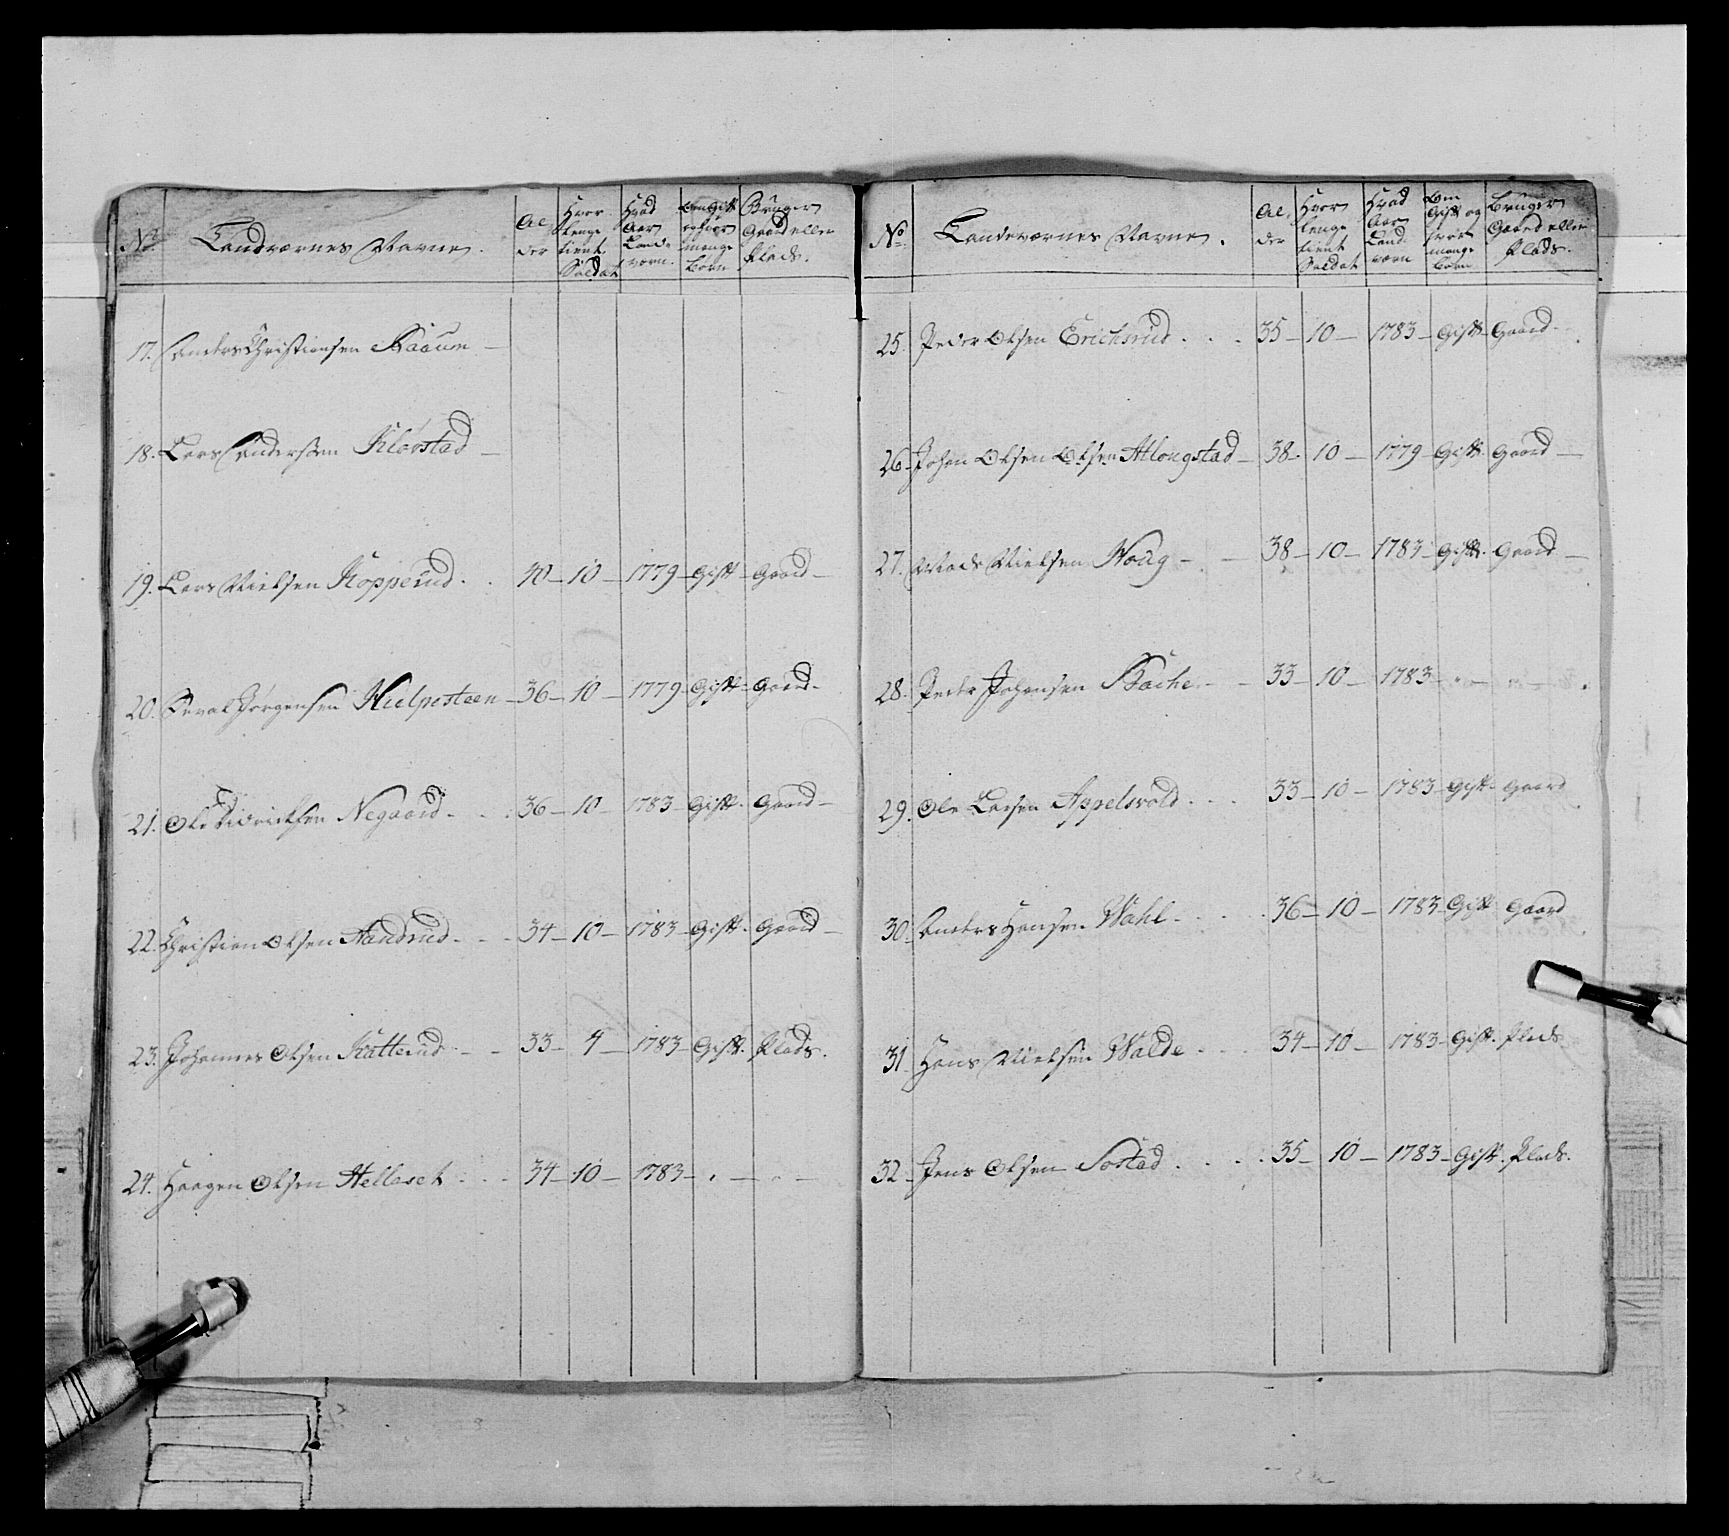 No Landværnes Navne. Al der Hvor lenge tient Soldat Hvad Aar Land værn. Om Gift og hvor mange Børn Bruger Gaard eller Plads.
17. Anders Christiansen Baaum —
18. Lars Andersen Kløvstad —
19. Lars Nielsen Kopperud . . 40 — 10 — 1779 — Gift — Gaard —
20. Sival Jørgensen Hielpesteen — 36 — 10 — 1779 — Gift — Gaard —
21. Ole Didrichsen Negaard . . . 36 — 10 — 1783 — Gift . Gaard —
22. Christian Olsen Aandrud . . . 34 — 10 — 1783 — Gift . Gaard —
23. Johannes Olsen Katterud . — — 33 — 4 — 1783 — Gift . Plads .
24. Haagen Olsen Helleset . . . 34 — 10 — 1783 — . — . —
No Landeværnes Navne . Al, der Hvor lenge tient Soldat Hvad Aar Land- værn Om Gift og hvor mange Børn Bruger Gaard eller Plads.
25. Peder Olsen Erichsrud . . . 35 — 10 — 1783 — Gift — Gaard .
26. Johan Olsen Olsen Atlongstad — 38 . 10 — 1779 — Gift . Gaard —
27. Mads Nielsen Houg — . — 38 — 10 — 1783 — Gift . Gaard —
28. Peder Johansen Bache . — — 33 — 10 — 1783 — . — . — .
29. Ole Larsen Appelsvold . . . 33 — 10 — 1783 — Gift — Gaard
30. Anders Hansen Wahl . . . . 36 — 10 — 1783 — Gift Gaard
31. Hans Nielsen Walde . . . 34 — 10 — 1783 — Gift . Plads
32. Jens Olsen Sostad . . . . 35 — 10 — 1783 — Gift . Plads .